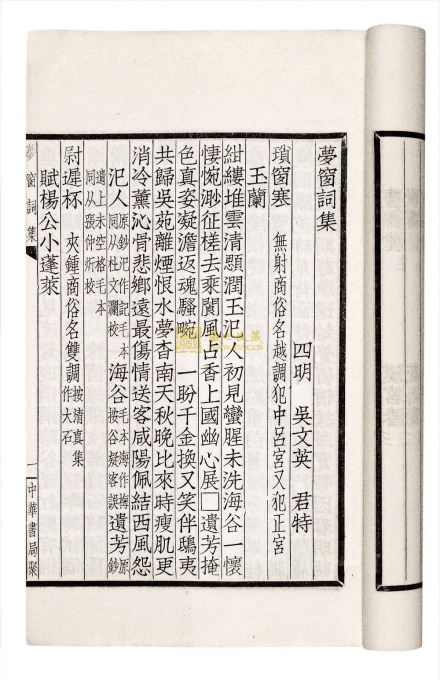 夢窗詞集
四明 吳文英 君特
瑣窗寒 無射商俗名越調犯中呂宮又犯正宮
玉蘭
紺縷堆雲清顋潤玉汜人初見蠻腥未洗海谷一懷
悽惋渺征槎去乘閬風占香上國幽心展□遺芳掩
色真姿凝澹返魂騷畹 一盼千金換又笑伴鴟夷
共歸吳苑離煙恨水夢杳南天秋晚比來時瘦肌更
消冷薰沁骨悲鄉遠最傷情送客咸陽佩結西風怨
汜人 原鈔汜作記毛本同從杜文瀾校 海谷 毛本海作梅按谷疑客誤 遺芳 原鈔
遺上未空格毛本同從張仲炘校
尉遲杯 夾鍾商俗名雙調 按清真集作大石
賦楊公小蓬萊
夢窗詞集
一
中華書局聚